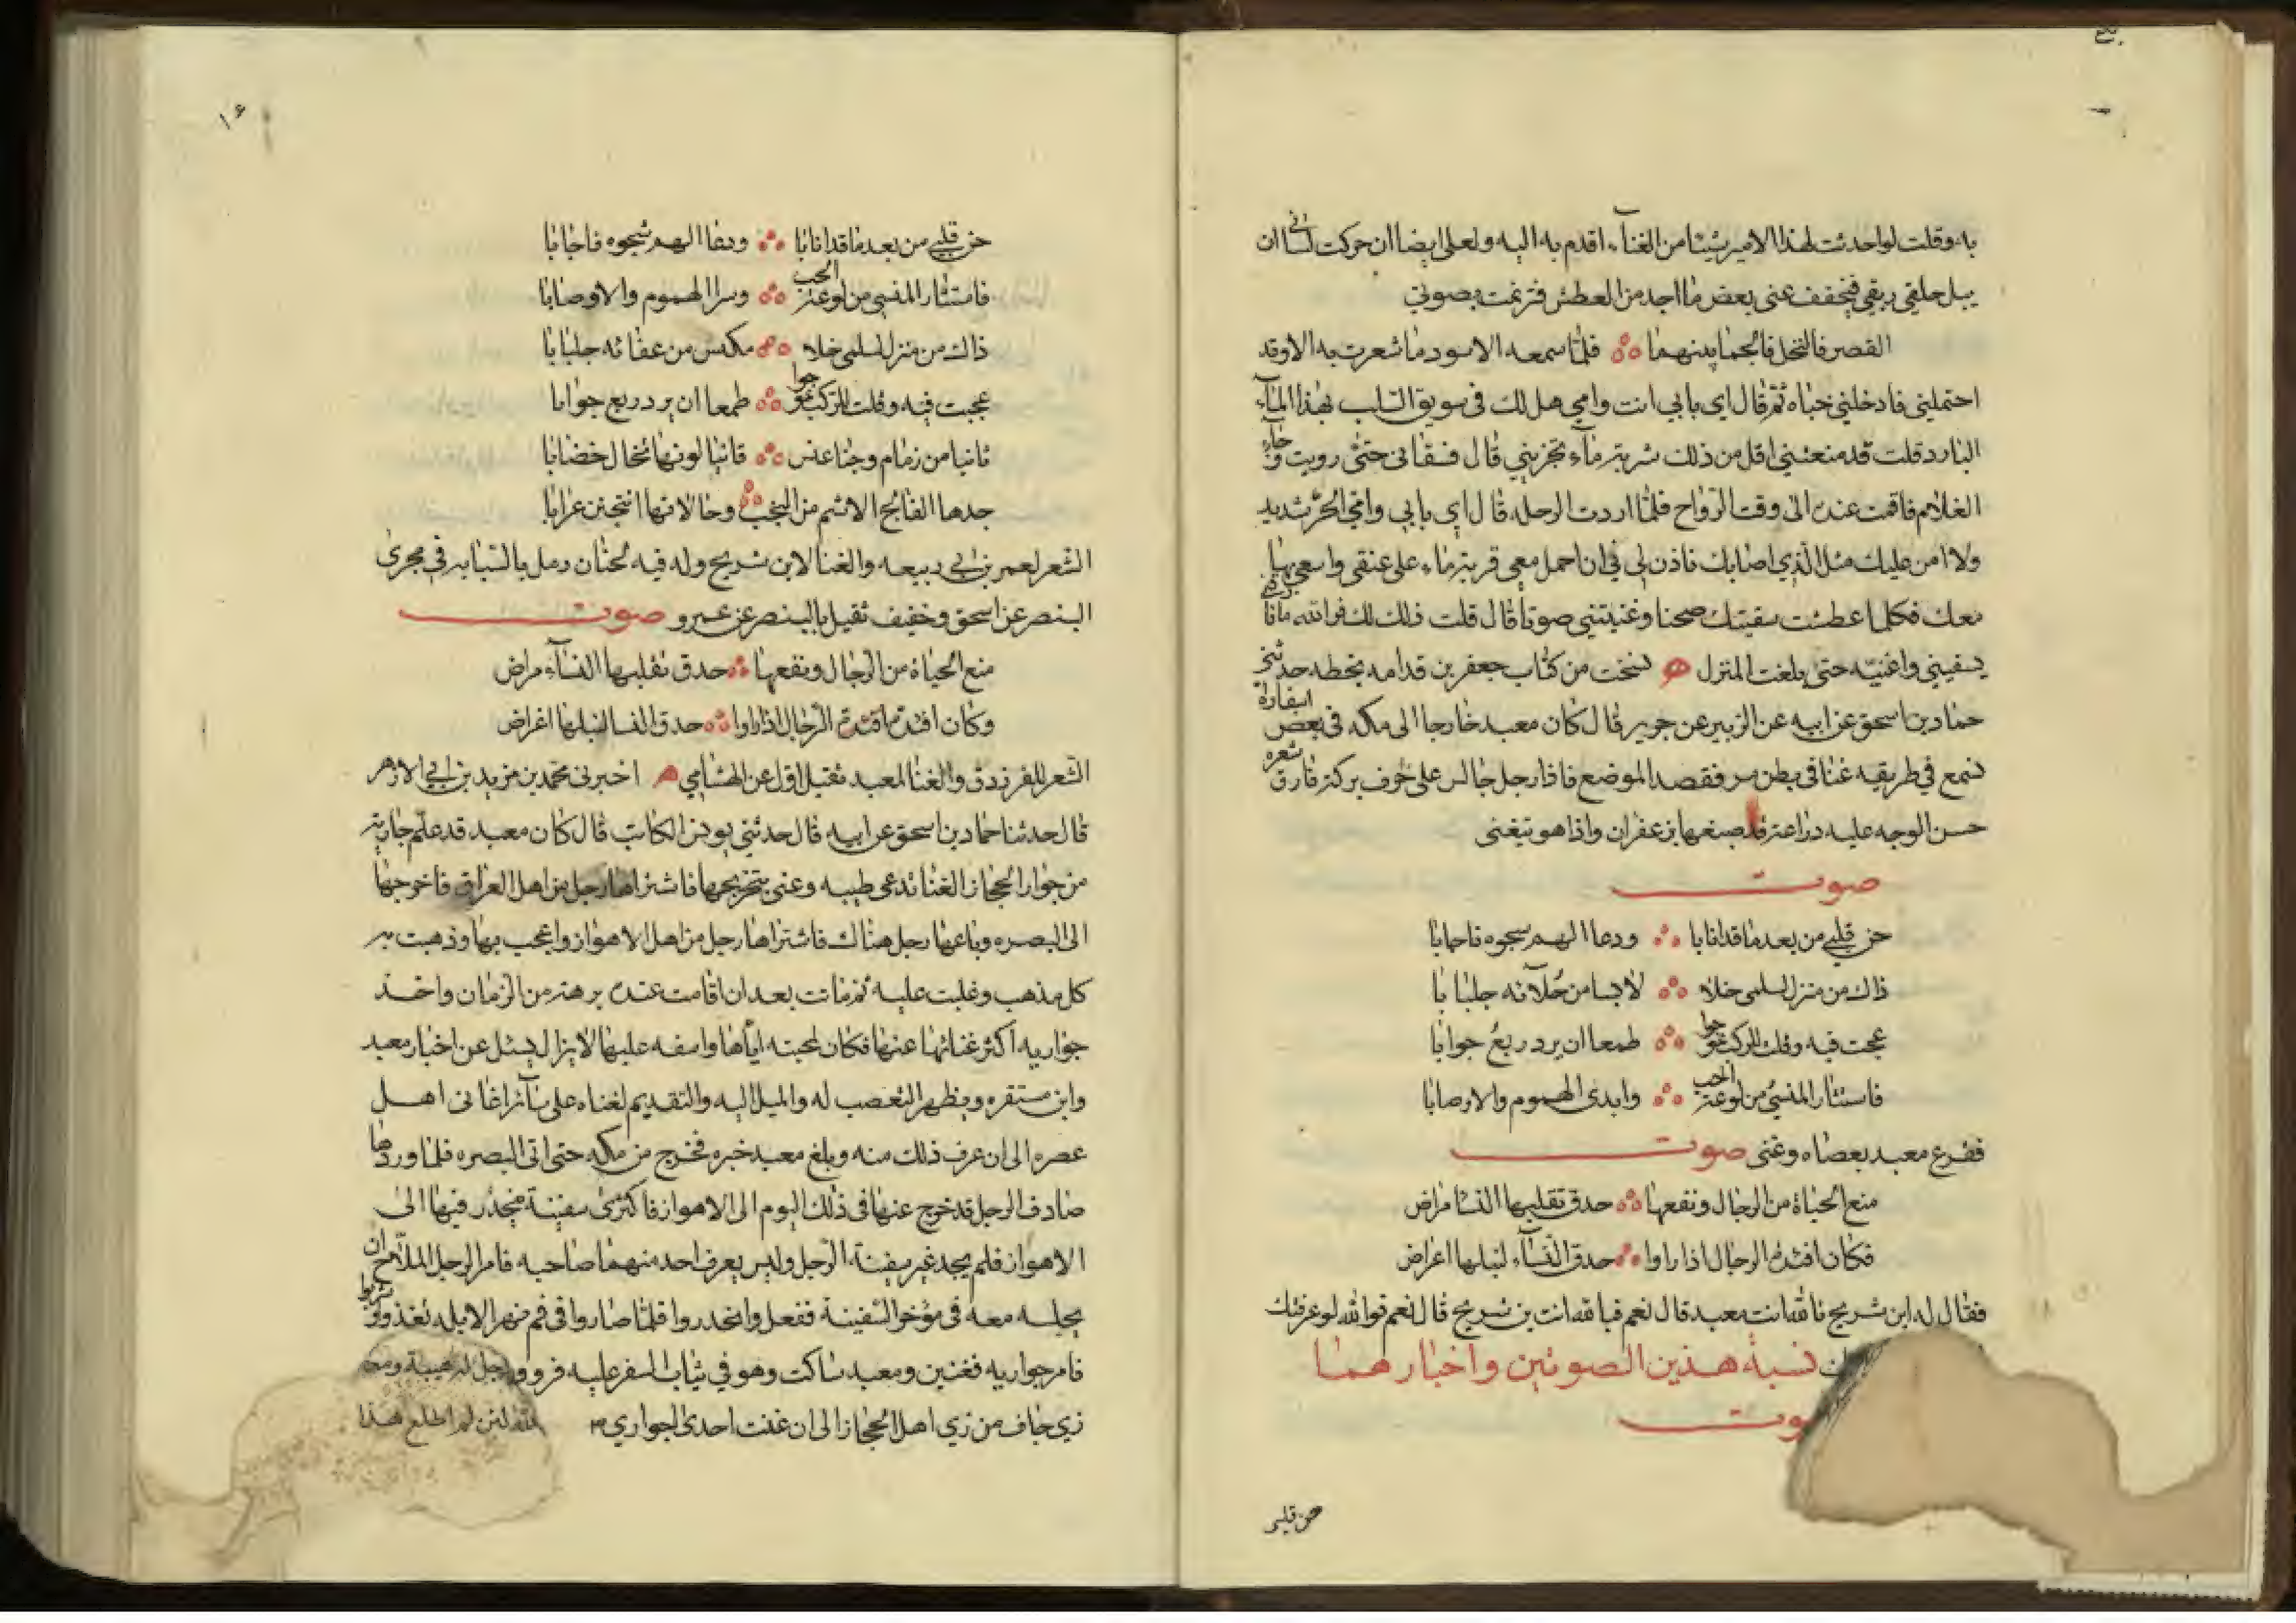 به وقلت لو احدثت لهذا الامير شيئا من الغنآء اقدم به اليه ولعلى ايضا ان حركت لسانى ان
يبل حلقى ريقى فيخفف عنى بعض ما اجد من العطش فترنمت بصوتى
القصر فالنخل فالجما بينهما فلما سمعه الاسود ما شعرت به الا وقد
احتملنى فادخلنى خباه ثم قال اى بابى انت وامى هل لك فى سويق السلت بهذا المآء
البارد قلت قد منعتنى اقل من ذلك شربة مآء تجزينى قال فسقانى حتى رويت وجآء
الغلام فاقمت عنده الى وقت الرواح فلما اردت الرحله قال اى بابى وامى الحر شديد
ولا امن عليك مثل الذى اصابك فاذن لى فى ان احمل معى قربة ماء على عنقى واسعى بها
معك فكلما عطشت سقيتك صحنا وغنيتنى صوتا قال قلت ذلك لك فوالله ما فارقنى
يسقينى واغنيه حتى بلغت المنزل نسخت من كتاب جعفر بن قدامه بخطه حدثنى
حماد بن اسحق عن ابيه عن الزبير عن جرير قال كان معبد خارجا الى مكه فى بعض اسفاره
فسمع فى طريقه غنا فى بطن مر فقصد الموضع فاذا رجل جالس على حرف بركة فارق شعره
حسن الوجه عليه دراعة قد صبغها بزعفران واذا هو يتغنى
صوت
حن قلبى من بعد ما قد انابا ودعا الهم شجوه فاجابا
ذاك من منزل لسلمى خلاء لابسا من خلآئه جلبابا
عجت فيه وقلت للركب عوجوا طمعا ان يرد ربع جوابا
فاستثار المنسى من لوعة الحب وابدى الهموم والاوصابا
فقرع معبد بعصاه وغنى صوت
منع الحياة من الرجال ونفعها حدق تقلبها النسا مراض
فكان افئدة الرجال اذا راوا حدق النسآء لنبلها اغراض
فقال له ابن شريح بالله انت معبد قال نعم فبالله انت بن شريح قال نعم فوالله لو عرفتك
نسبة هذين الصوتين واخبارهما
صوت
حن قلبى
١٤
حن قلبى من بعد ما قد انابا ودعا الهم شجوه فاجابا
فاستثار المنسى من لوعة الحب وسرا الهموم والاوصابا
ذاك من منزل لسلمى خلاء مكتس من عفائه جلبابا
عجت فيه وقلت للركب عوجوا طمعا ان يرد ربع جوابا
ثانيا من زمام وجناء عنس قانيا لونها تخال خضابا
جدها الفالج الاشم من البخت وخالاتها انتجبن عرابا
الشعر لعمر بن ابى ربيعه والغنا لابن شريح وله فيه لحنان رمل بالسبابه فى مجرى
البنصر عن اسحق وخفيف ثقيل بالبنصر عن عمرو صوت
منع الحياة من الرجال ونفعها حدق تقلبها النسآء مراض
وكان افئدة الرجال اذا راوا حدق النسا لنبلها اغراض
الشعر للفرزدق والغنا لمعبد ثقيل اول عن الهشامى اخبرنى محمد بن مزيد بن ابى الازهر
قال حدثنا حماد بن اسحق عن ابيه قال حدثنى يونس الكاتب قال كان معبد قد علم جارية
من جوار الحجاز الغنا تدعى طيبه وعنى بتخريجها فاشتراها رجل من اهل العراق فاخرجها
الى البصره وباعها رجل هناك فاشتراها رجل من اهل الاهواز واعجب بها وذهبت به
كل مذهب وغلبت عليه ثم ماتت بعد ان اقامت عنده برهة من الزمان واخذ
جواريه اكثر غنائها عنها فكان لمحبته اياها واسفه عليها لا يزال يسئل عن اخبار معبد
واين مستقره ويظهر التعصب له والميل اليه والتقديم لغناه على سآئر اغانى اهل
عصره الى ان عرف ذلك منه وبلغ معبد خبره فخرج من مكه حتى اتى البصره فلما وردها
صادف الرجل قد خرج عنها فى ذلك اليوم الى الاهواز فاكترى سفينة منحدر فيها الى
الاهواز فلم يجد غير سفينة الرجل وليس يعرف احد منهما صاحبه فامر الرجل الملاح ان
يجلسه معه فى مؤخر السفينة ففعل وانحدروا فلما صاروا فى فم نهر الابله تغذوا وشربوا
فامر جواريه فغنين ومعبد ساكت وهو فى ثياب السفر عليه فرو
زى جاف من زى اهل الحجاز الى ان غنت احدى الجوارى